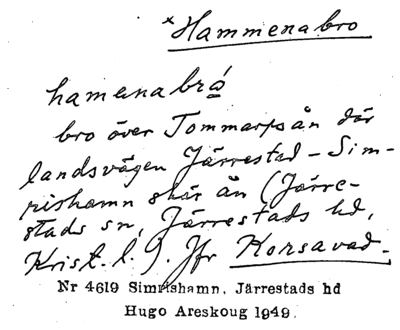 *Hammenabro
hamenabrǻ
bro över Tommarpsån där
landsvägen Järrestad – Sim-
rishamn skär ån (Järre-
stads sn, Järrestads hd,
Krist. l.). Jfr Korsavad.
Nr 4619 Simrishamn, Järrestads hd
Hugo Areskoug 1949.